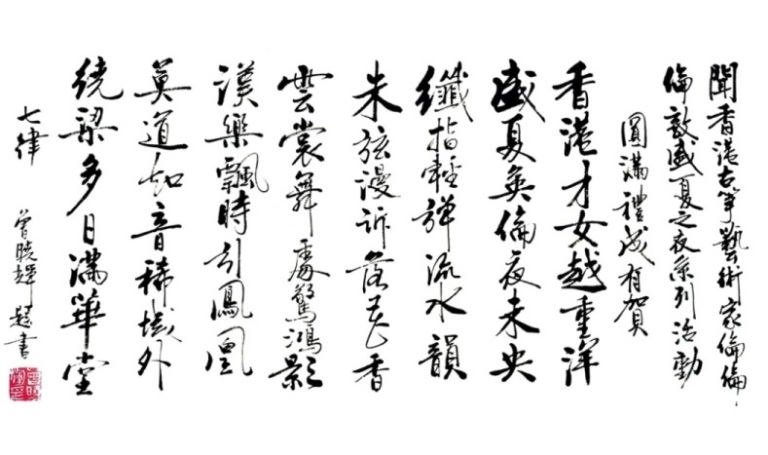 聞香港古箏藝術家倫倫
倫敦盛夏之夜系列活動
圓滿禮成有賀
香港才女越重洋
盛夏英倫夜未央
纖指輕彈流水韻
朱弦漫訴落花香
雲裳舞處驚鴻影
漢樂飄時引鳳凰
莫道知音稀域外
繞梁多日滿華堂
七律
曾曉輝題書